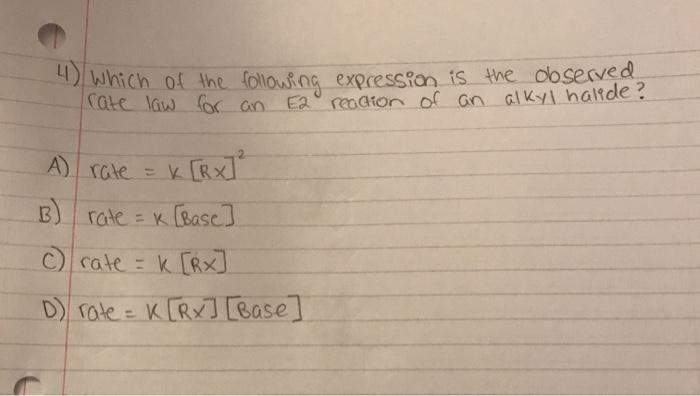 4) Which of the following expression is the observed
rate law for an E2 reaction of an alkyl halide?
A) rate = K [RX]²
B) rate = K [Base]
C) rate = K [RX]
D) rate = K [RX] [Base]